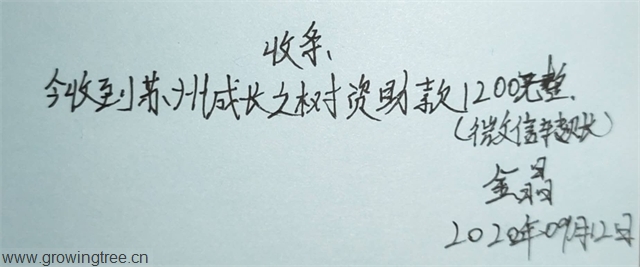 收条
今收到苏州成长之树资助款1200元整
(微信辛超长)
金晶
2020年09月12日
www.growingtree.cn